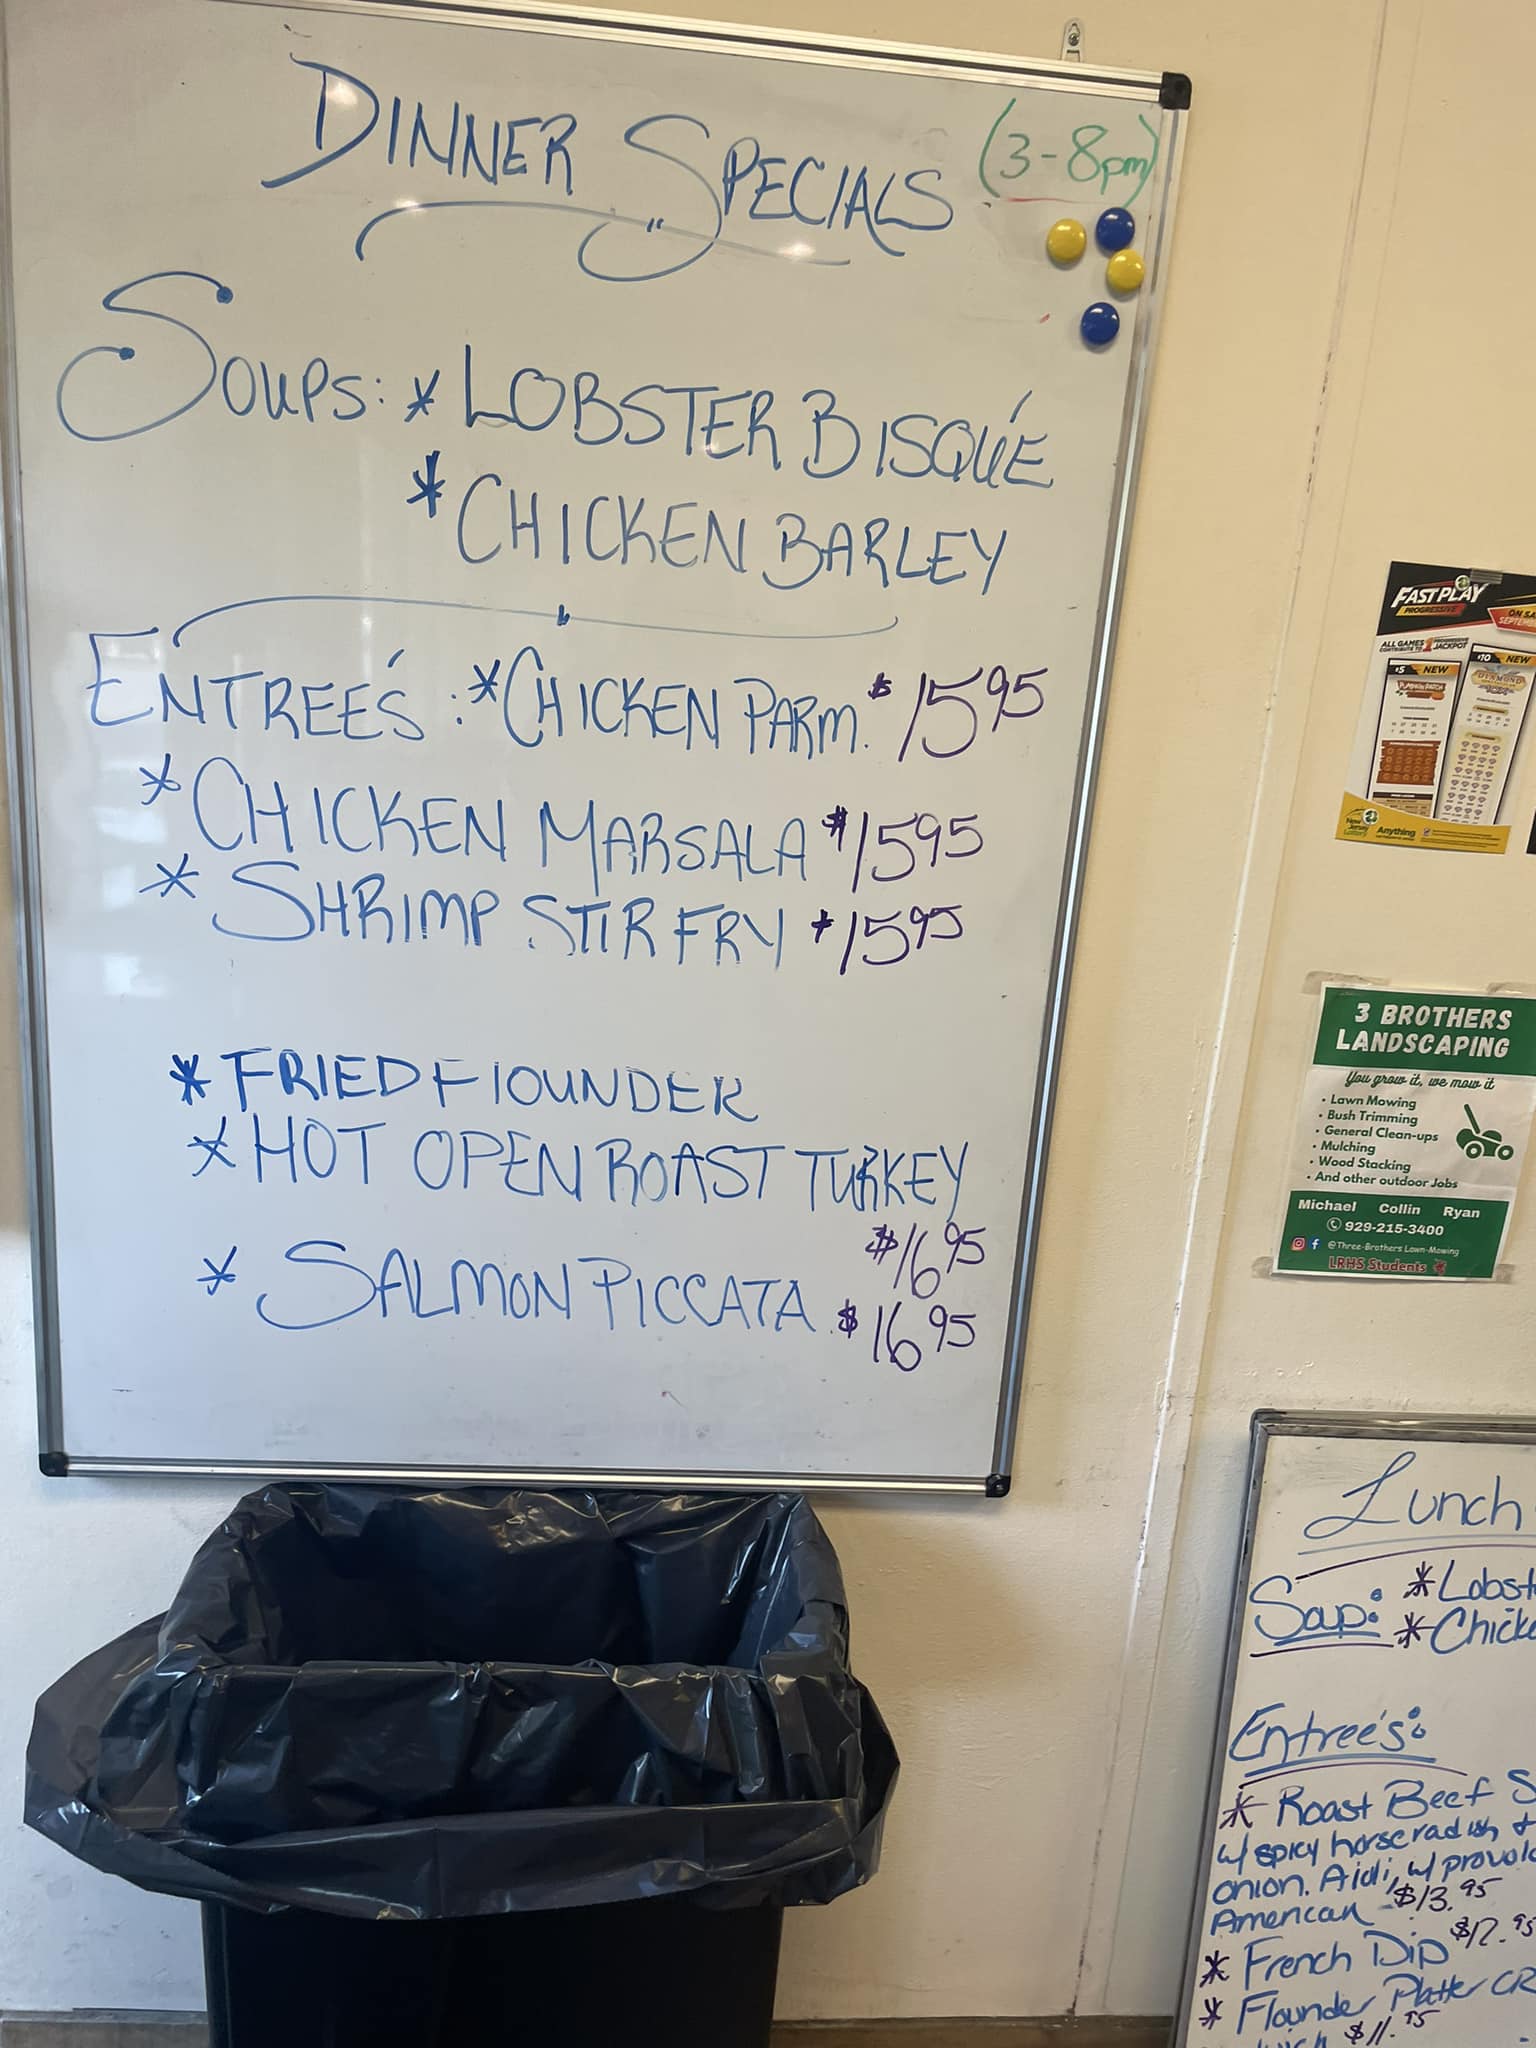 DINNER SPECIALS (3-8pm)
SOUPS: * LOBSTER BISQUÉ
* CHICKEN BARLEY
ENTREÉ'S : * CHICKEN PARM. $15 95
* CHICKEN MARSALA $15 95
* SHRIMP STIR FRY $15 95
* FRIED FlOUNDER
* HOT OPEN ROAST TURKEY
$16 95
* SALMON PICCATA $16 95
FAST PLAY
PROGRESSIVE
ALL GAMES CONTRIBUTE TO 1 PROGRESSIVE JACKPOT
$5 NEW
$10 NEW
New Jersey Lottery
Anything
3 BROTHERS
LANDSCAPING
You grow it, we mow it
• Lawn Mowing
• Bush Trimming
• General Clean-ups
• Mulching
• Wood Stacking
• And other outdoor Jobs
Michael Collin Ryan
929-215-3400
@Three-Brothers Lawn-Mowing
LRHS Students
Lunch
Soup: * Lobst
* Chicke
Entreé's:
* Roast Beef S
w/ spicy horseradish +
onion. Aioli, w/ provolo
American - $13.95
* French Dip $12.95
* Flounder Platter OR
$11.95